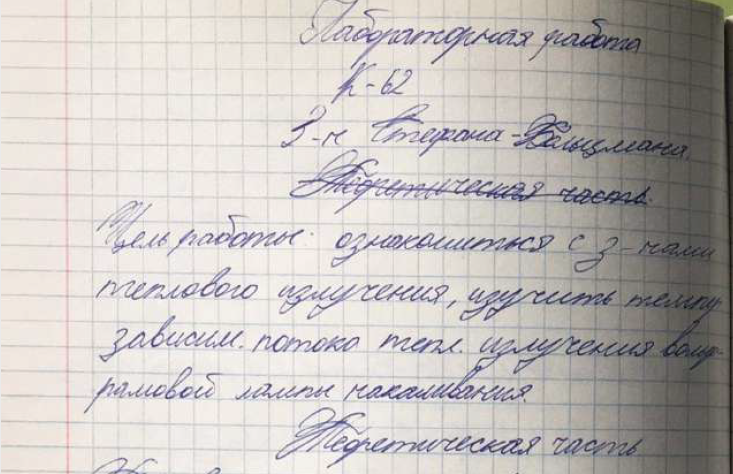 Лабораторная работа
К-62
З-н Стефана-Больцмана.
Теоретическая часть.
Цель работы: ознакомиться с з-нами
теплового излучения, изучить темпер
зависим. потока тепл. излучения вольф-
рамовой лампы накаливания.
Теоретическая часть